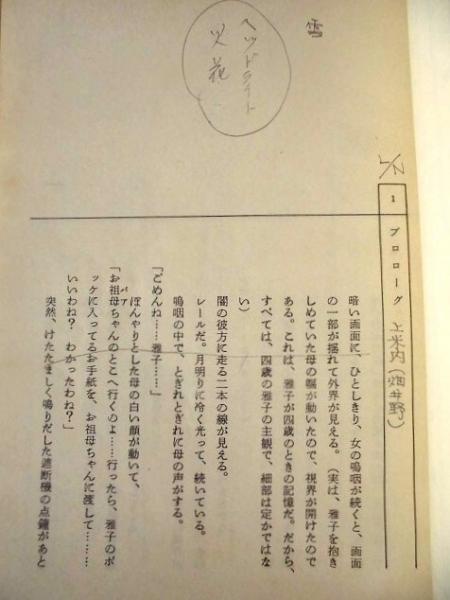 雪
ヘッドライト
火花
1
プロローグ
上米内(畑井野)
暗い画面に、ひとしきり、女の嗚咽が続くと、画面
の一部が揺れて外界が見える。(実は、雅子を抱き
しめていた母の軀が動いたので、視界が開けたので
ある。これは、雅子が四歳のときの記憶だ。だから、
すべては、四歳の雅子の主観で、細部は定かではな
い)
闇の彼方に走る二本の線が見える。
レールだ。月明りに冷く光って、続いている。
嗚咽の中で、とぎれとぎれに母の声がする。
「ごめんね……雅子……」
ぼんやりとした母の白い顔が動いて、
「お祖母ちゃんのとこへ行くのよ……行ったら、雅子のポ
ッケに入ってるお手紙を、お祖母ちゃんに渡して………
いいわね? わかったわね?」
突然、けたたましく鳴りだした遮断機の点鐘があと